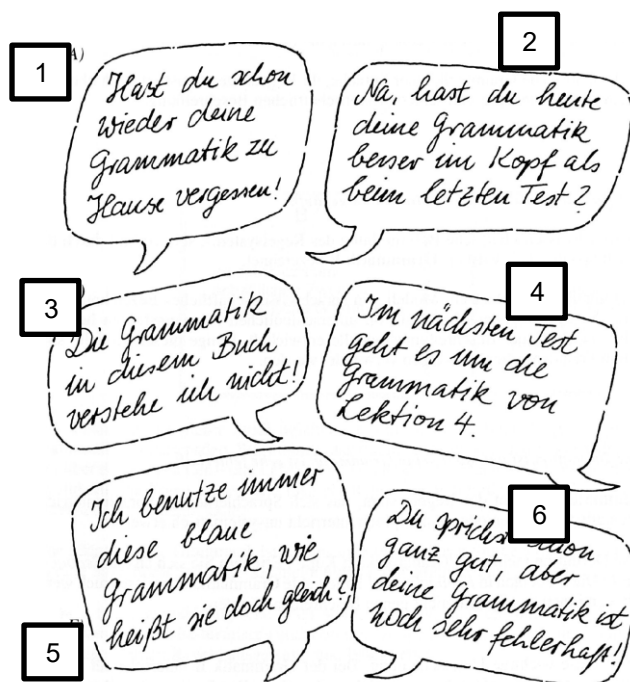 1
Hast du schon
wieder deine
Grammatik zu
Hause vergessen!
2
Na, hast du heute
deine Grammatik
besser im Kopf als
beim letzten Test?
3
Die Grammatik
in diesem Buch
verstehe ich nicht!
4
Im nächsten Test
geht es um die
Grammatik von
Lektion 4.
5
Ich benutze immer
diese blaue
Grammatik, wie
heißt sie doch gleich?
6
Du
ganz gut, aber
deine Grammatik ist
noch sehr fehlerhaft!